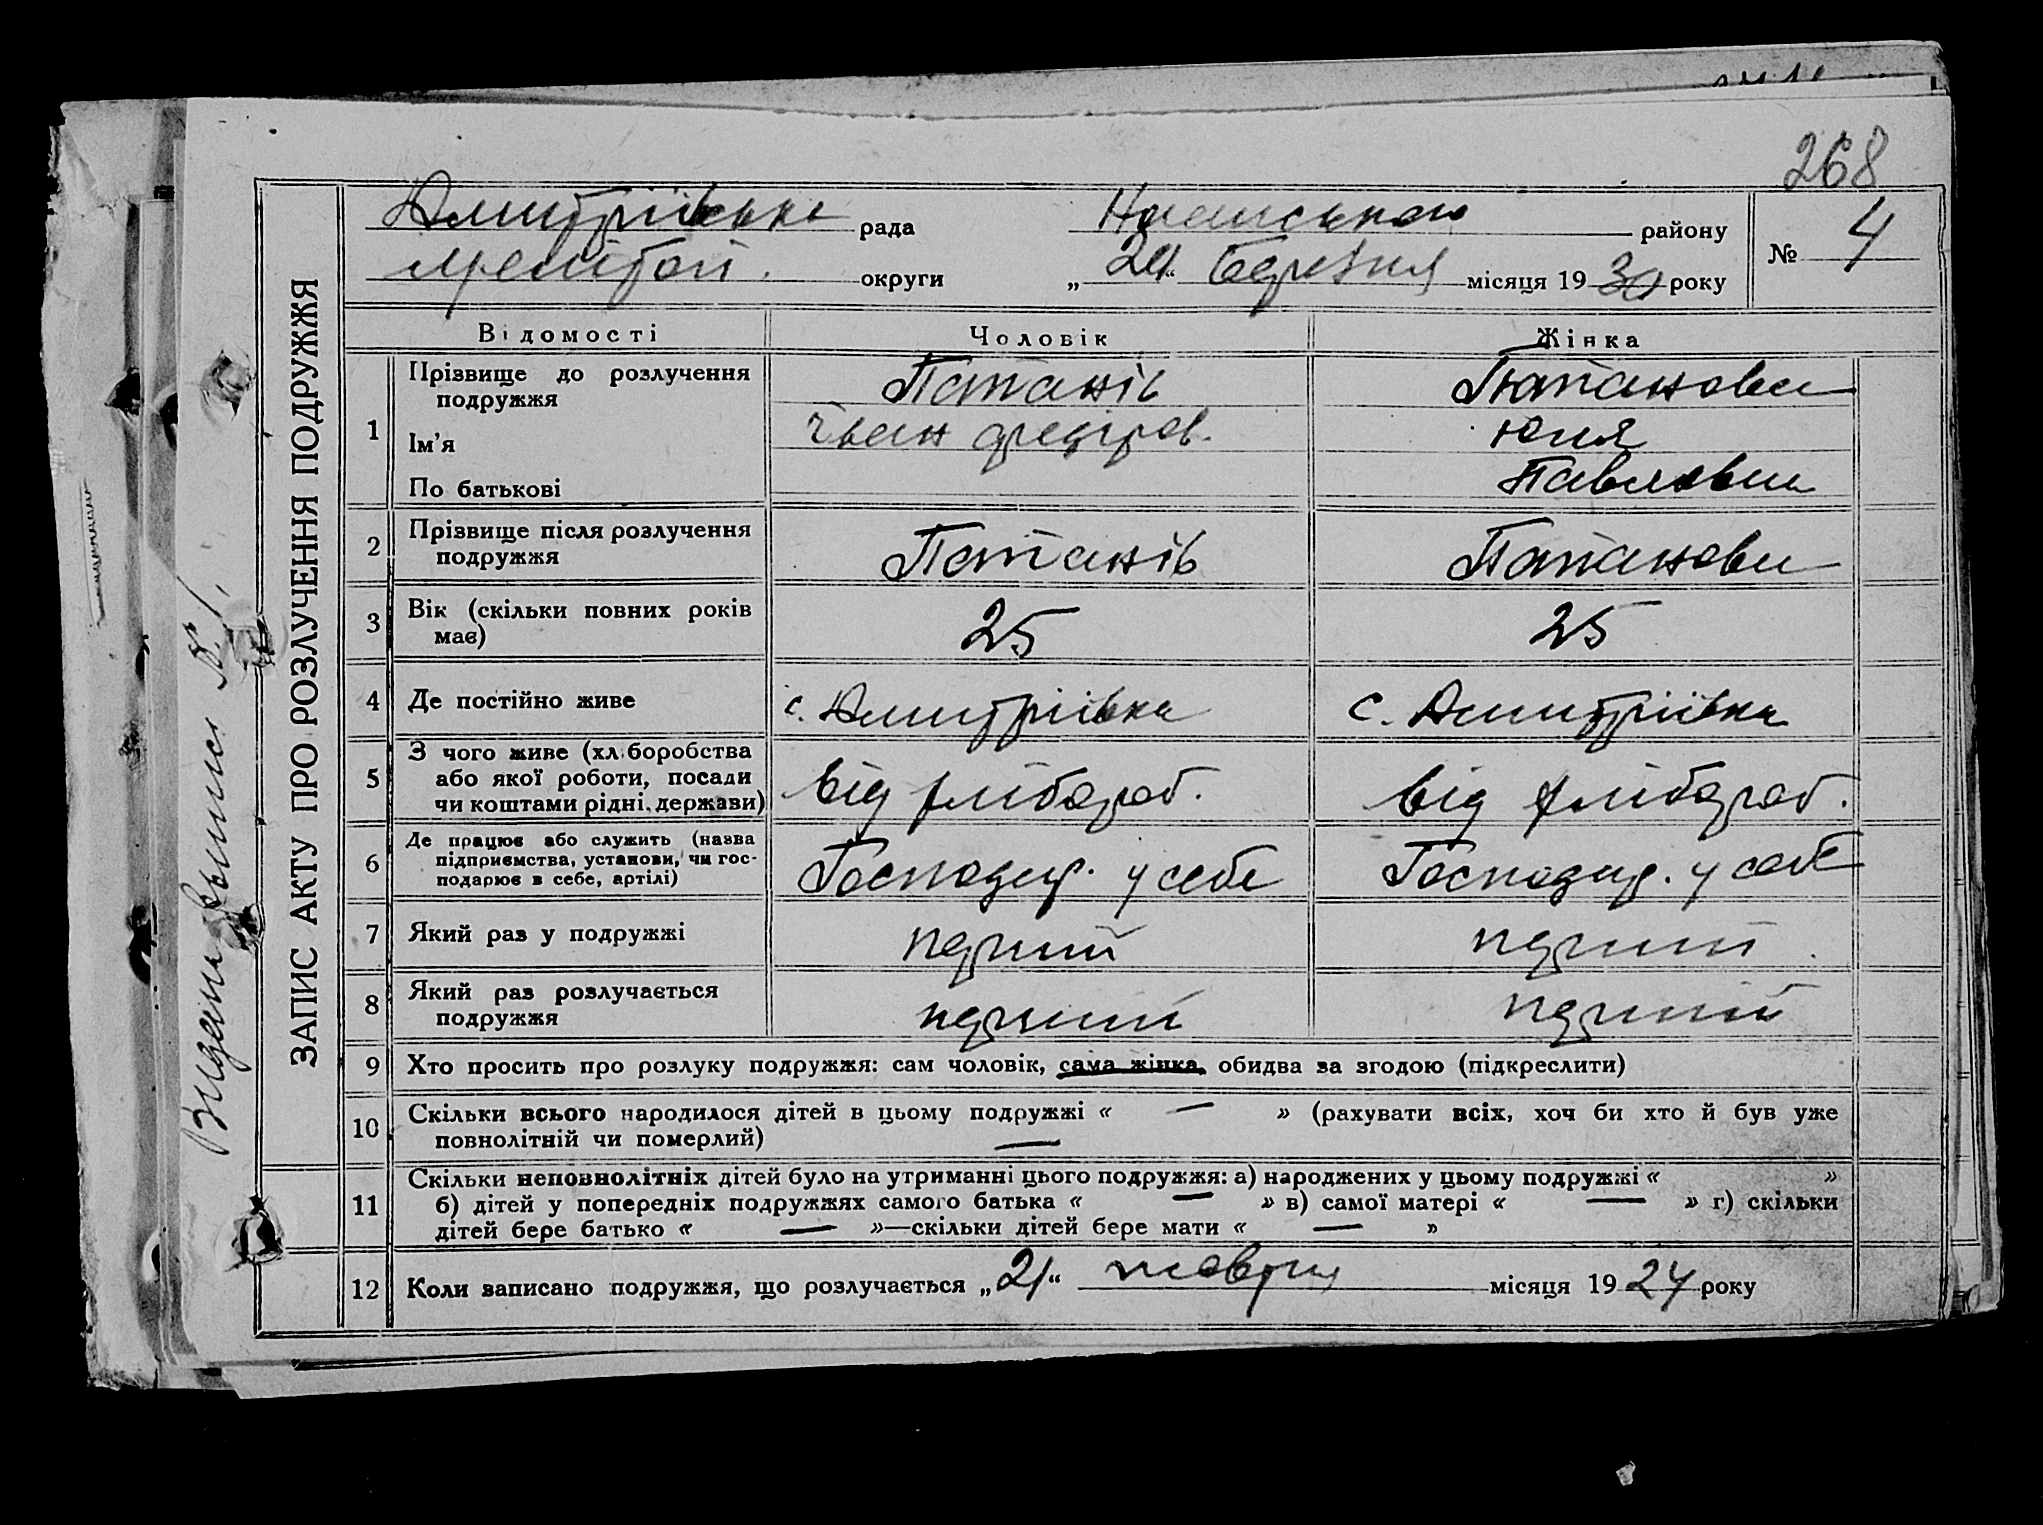 268
Дмитрівська рада
району
№ 4
Меліtoп. округи
„24“ березня місяця 1930 року
ЗАПИС АКТУ ПРО РОЗЛУЧЕННЯ ПОДРУЖЖЯ
Відомості Чоловік Жінка
1 Прізвище до розлучення подружжя Патанів Патанова
Ім'я Іван Федіров. Юля
По батькові Павловна
2 Прізвище після розлучення подружжя Патанів Патанова
3 Вік (скільки повних років має) 25 25
4 Де постійно живе с. Дмитрівка с. Дмитрівка
5 З чого живе (хліборобства або якої роботи, посади чи коштами рідні, держави) від хлібороб. від хлібороб.
6 Де працює або служить (назва підприємства, установи, чи господарює в себе, артілі) Господар. у себе Господар. у себе
7 Який раз у подружжі перший перший
8 Який раз розлучається подружжя перший перший
9 Хто просить про розлуку подружжя: сам чоловік, сама жінка, обидва за згодою (підкреслити)
10 Скільки всього народилося дітей в цьому подружжі « — » (рахувати всіх, хоч би хто й був уже
повнолітній чи померлий) —
11 Скільки неповнолітніх дітей було на утриманні цього подружжя: а) народжених у цьому подружжі « »
б) дітей у попередніх подружжях самого батька « — » в) самої матері « — » г) скільки
дітей бере батько « — »—скільки дітей бере мати « — »
12 Коли записано подружжя, що розлучається „21“ жовтня місяця 1924 року